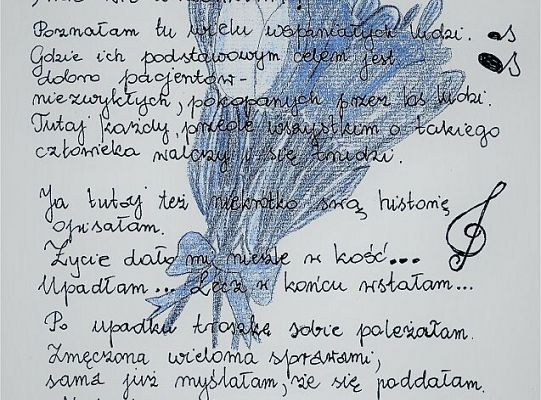 Poznałam tu wielu wspaniałych ludzi.
Gdzie ich podstawowym celem jest
dobro pacjentów-
niezwykłych, pokopanych przez los ludzi.
Tutaj każdy, przede wszystkim o takiego
człowieka walczy i się trudzi.
Ja tutaj też niekrótko swą historię
opisałam.
Życie dało mi nieźle w kość...
Upadłam... Lecz w końcu wstałam...
Po upadku troszkę sobie poleżałam.
Zmęczona wieloma sprawami,
sama już myślałam, że się poddałam.